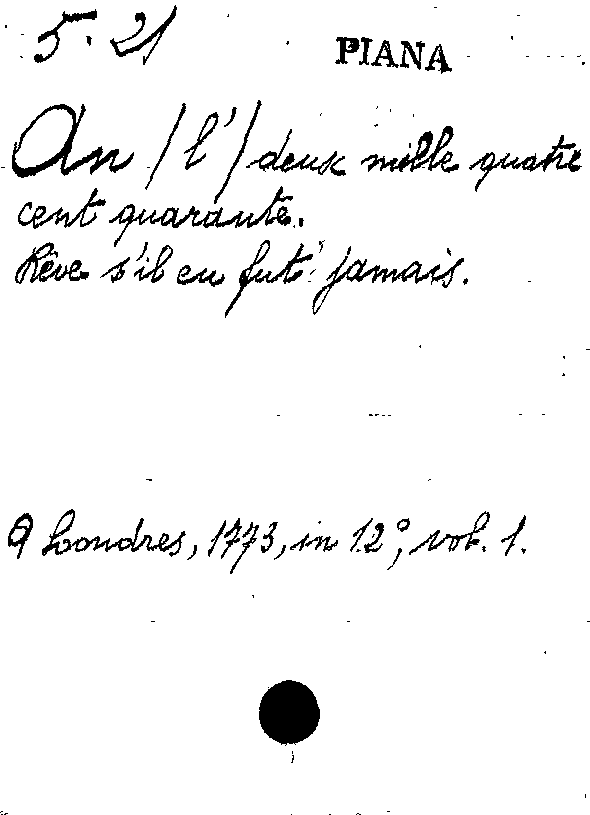 5. 21
PIANA
An /l'/ deux mille quatre
cent quarante.
Rêve s'il en fut jamais.
A Londres, 1773, in 12°, vol. 1.